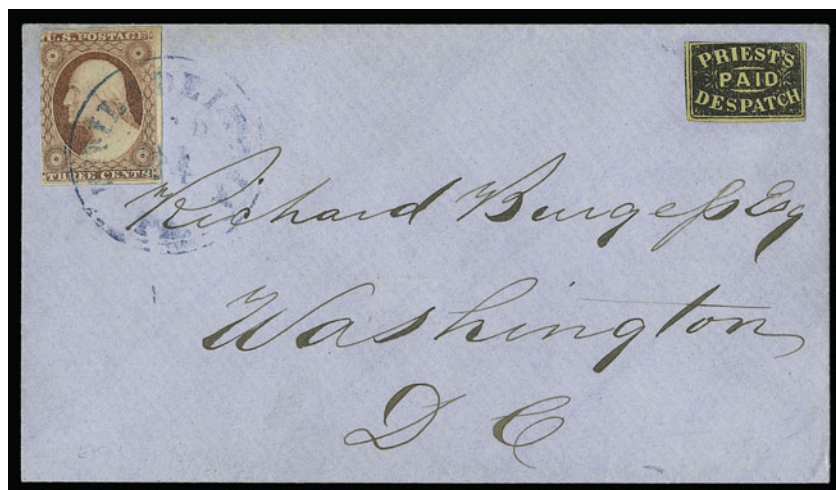 U.S. POSTAGE.
THREE CENTS
PRIEST'S
PAID
DESPATCH
Richard Burgess Esq
Washington
D C